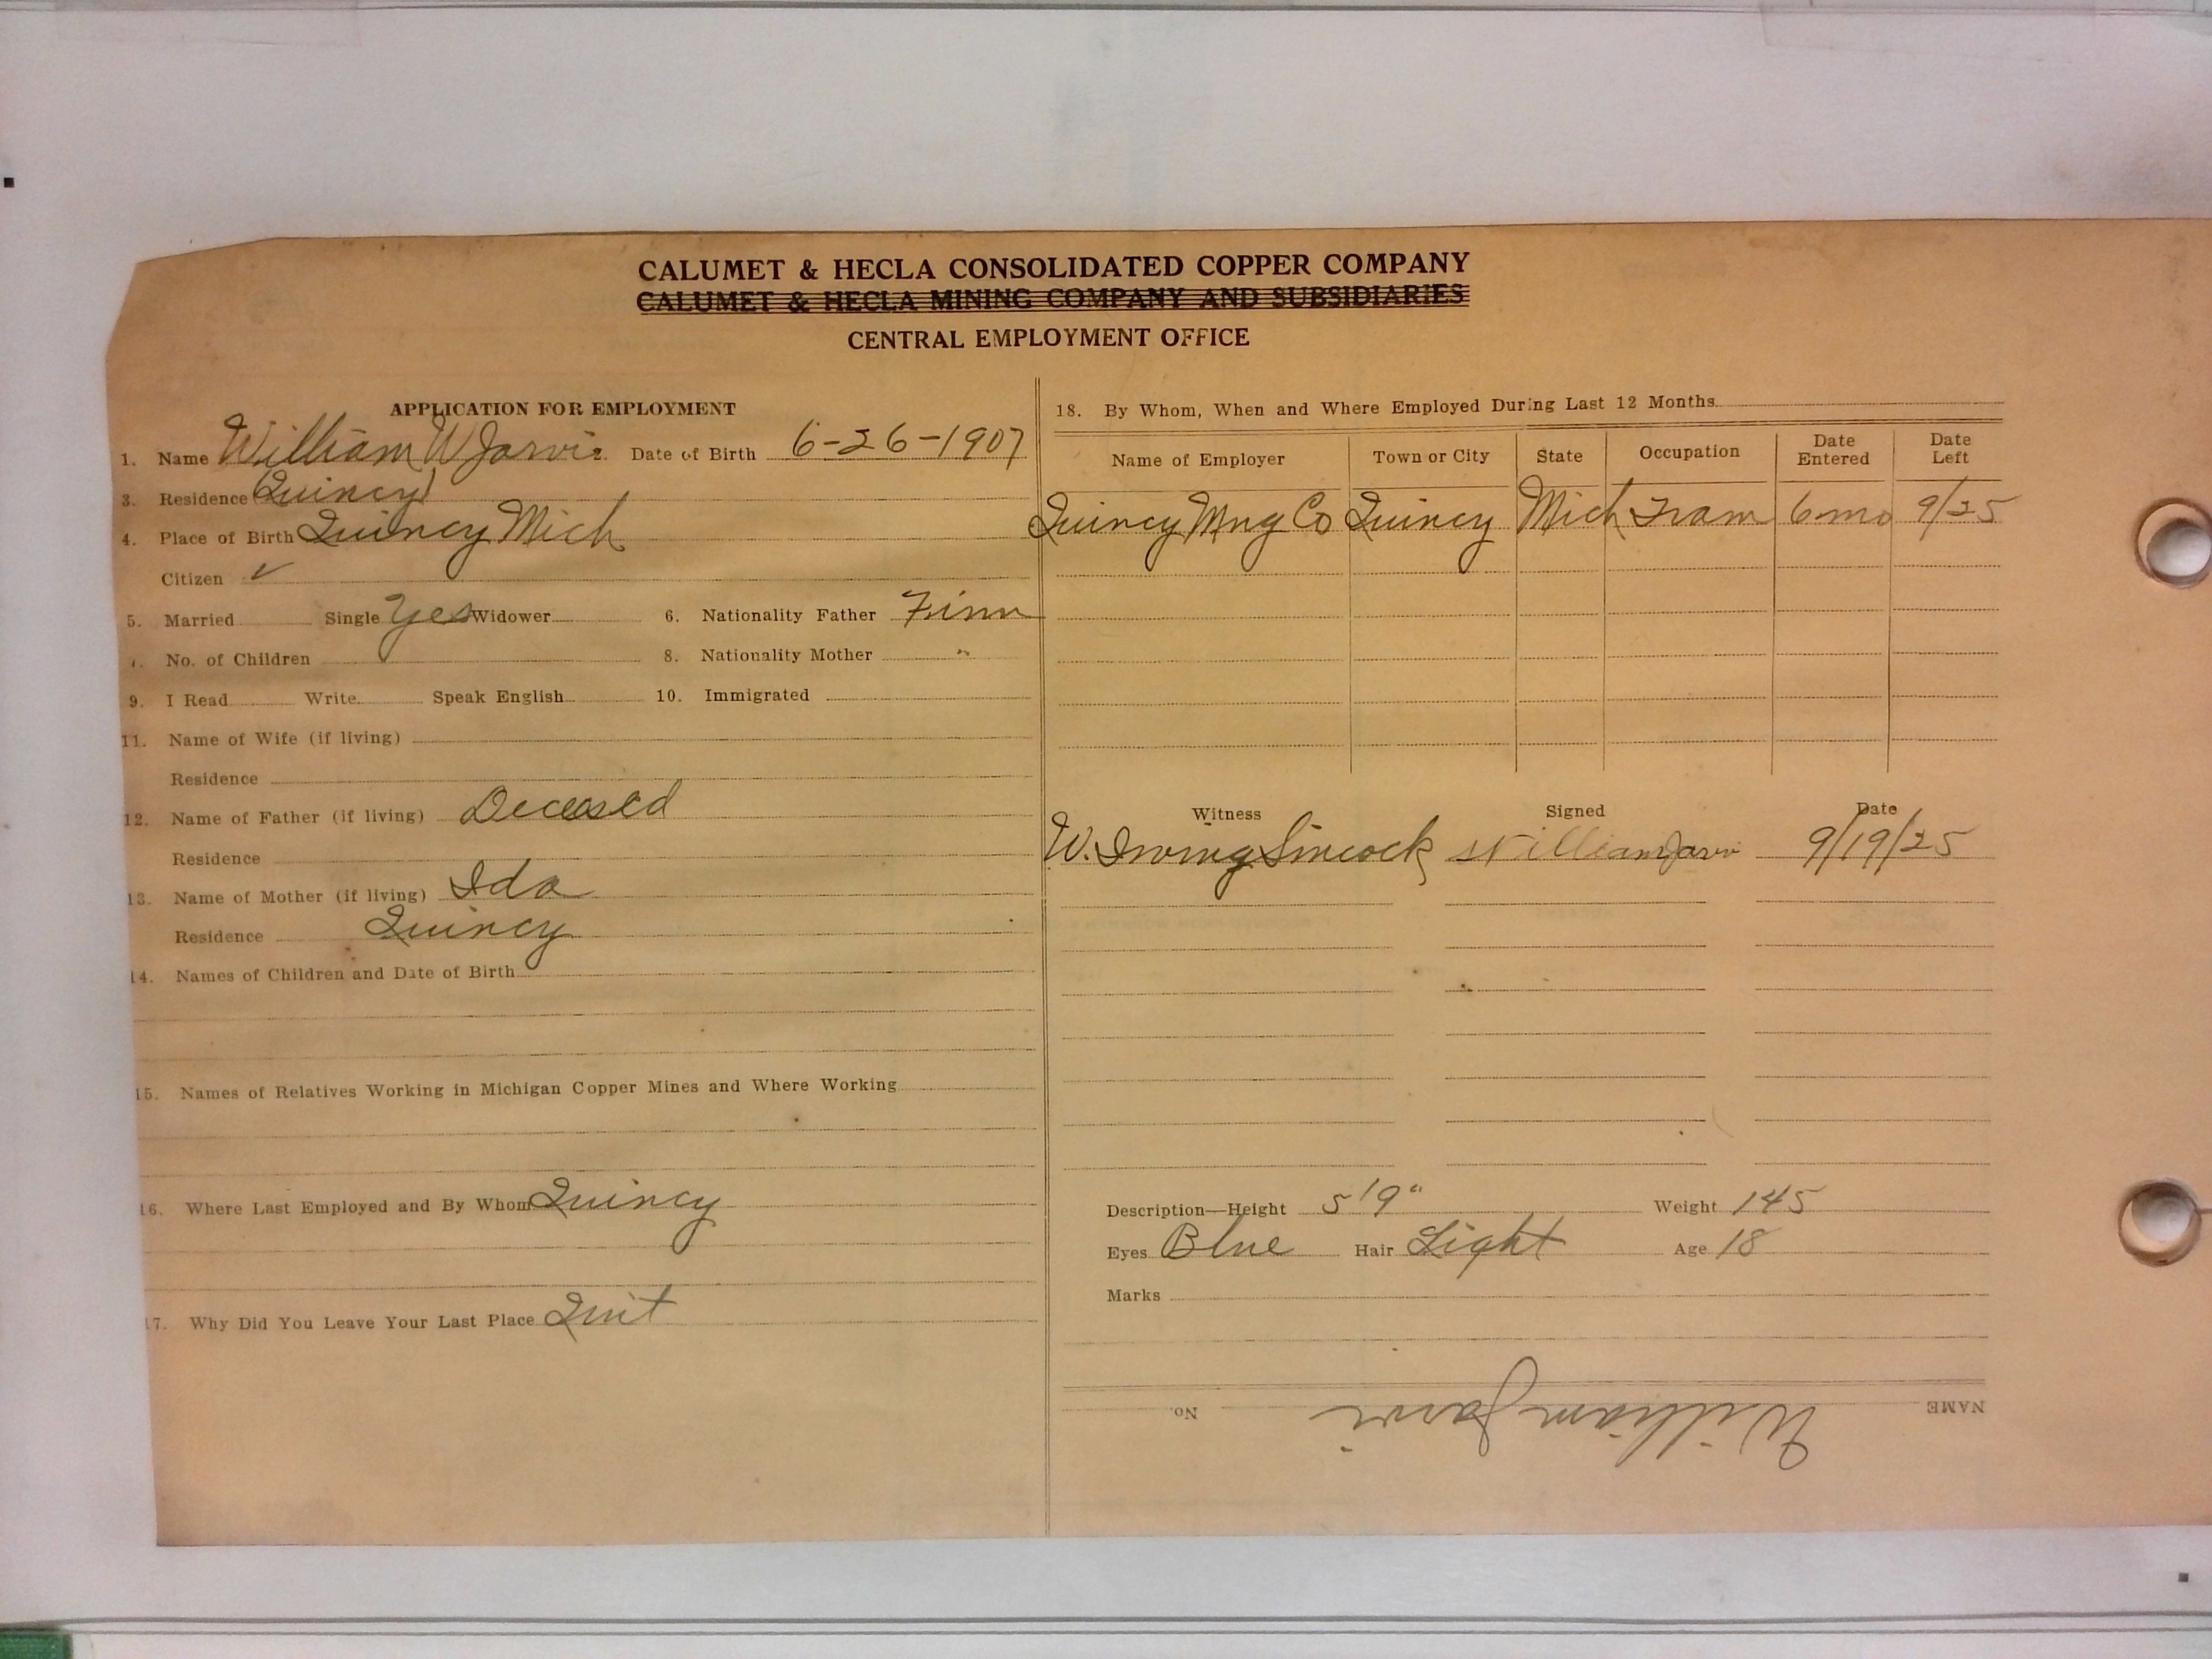 CALUMET & HECLA CONSOLIDATED COPPER COMPANY
CALUMET & HECLA MINING COMPANY AND SUBSIDIARIES
CENTRAL EMPLOYMENT OFFICE
APPLICATION FOR EMPLOYMENT
1. Name William W Jarvi Date of Birth 6-26-1907
3. Residence Quincy
4. Place of Birth Quincy Mich
Citizen ✓
5. Married Single Yes Widower 6. Nationality Father Finn
7. No. of Children 8. Nationality Mother "
9. I Read Write Speak English 10. Immigrated
11. Name of Wife (if living)
Residence
12. Name of Father (if living) Deceased
Residence
13. Name of Mother (if living) Ida
Residence Quincy
14. Names of Children and Date of Birth
15. Names of Relatives Working in Michigan Copper Mines and Where Working
16. Where Last Employed and By Whom Quincy
17. Why Did You Leave Your Last Place Quit
18. By Whom, When and Where Employed During Last 12 Months
Name of Employer Town or City State Occupation Date Entered Date Left
Quincy Mng Co Quincy Mich Tram 6 mo 9/25
Witness Signed Date
W. Irving Sincock William Jarvi 9/19/25
Description—Height 5'9" Weight 145
Eyes Blue Hair Light Age 18
Marks
NAME William Jarvi No.